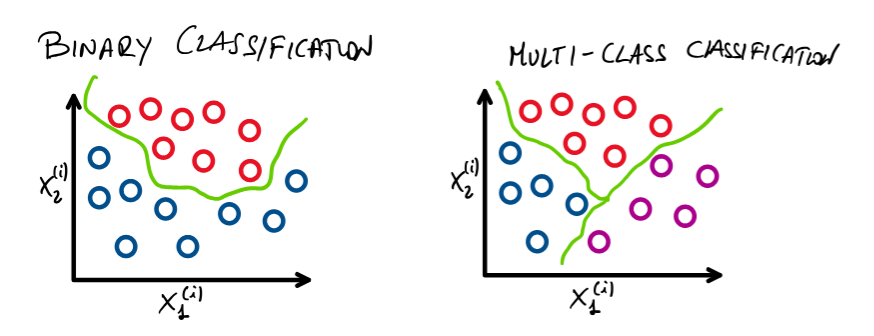 BINARY CLASSIFICATION
X₂⁽ⁱ⁾
X₁⁽ⁱ⁾
MULTI-CLASS CLASSIFICATION
X₂⁽ⁱ⁾
X₁⁽ⁱ⁾